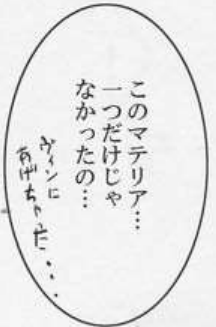 このマテリア…
一つだけじゃ
なかったの…
ヴィンに
あげちゃった・・・